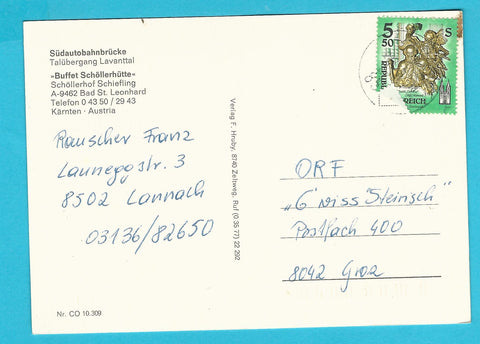 Südautobahnbrücke
Talübergang Lavanttal
»Buffet Schöllerhütte«
Schöllerhof Schiefling
A-9462 Bad St. Leonhard
Telefon 0 43 50 / 29 43
Kärnten · Austria
Rauscher Franz
Launeggstr. 3
8502 Lannach
03136/82650
Nr. CO 10.309
Verlag F. Hruby, 8740 Zeltweg, Ruf (0 35 77) 22 292
5
50
S
REPUBLIK
REICH
ORF
„G'wiss Steirisch"
Postfach 400
8042 Graz